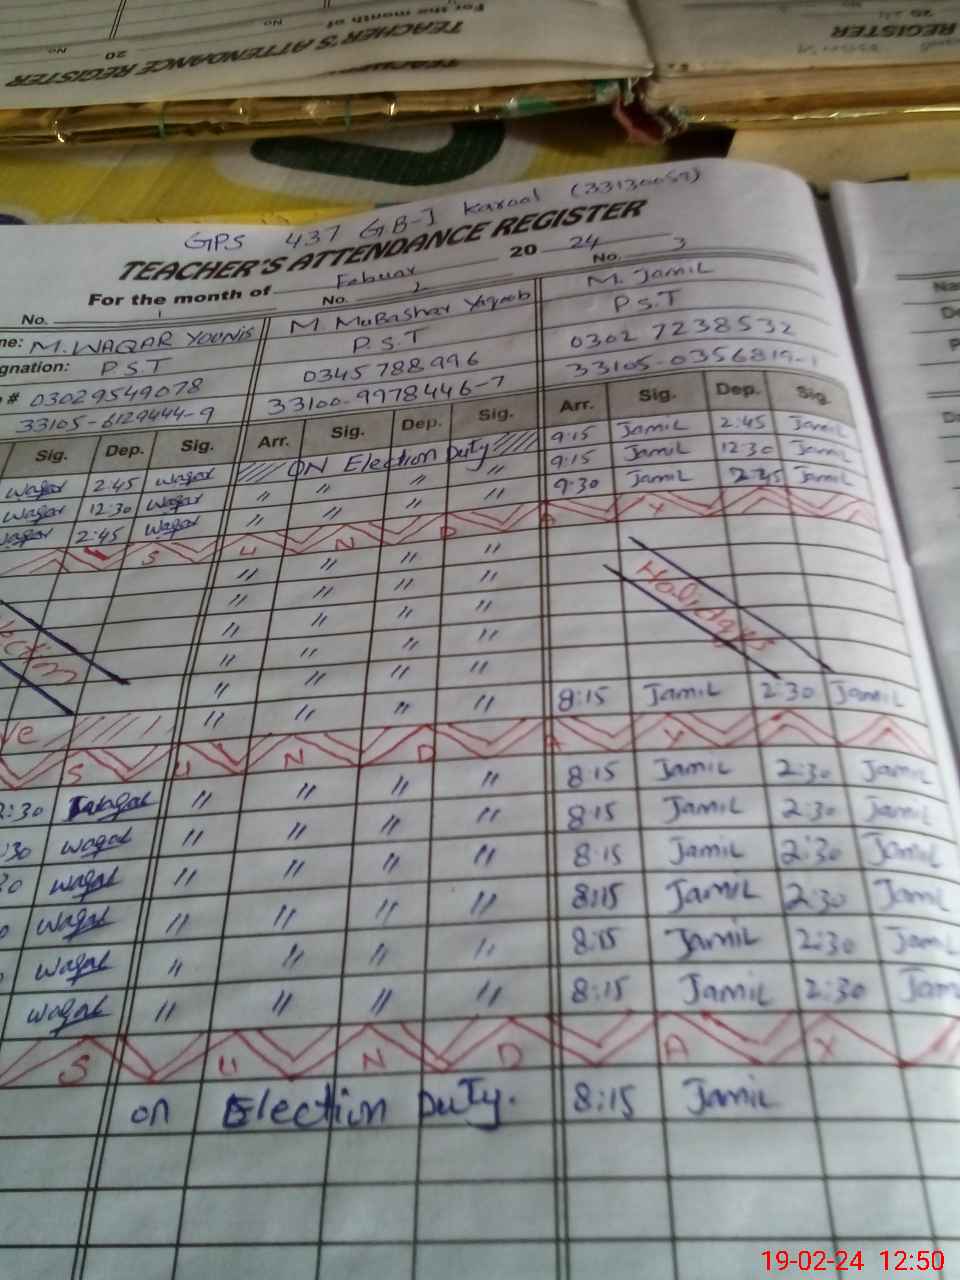 For the month of
No
TEACHER'S ATTENDANCE REGISTER
20
No
REGISTER
GPS 437 GB-I Karool (33130059)
TEACHER'S ATTENDANCE REGISTER
For the month of Febuar 20 24
No. 1 No. 2 No. 3
me: M. WAQAR YOUNIS M. MuBashar Yaqoob M. Jamil
gnation: P.S.T P.S.T P.S.T
# 03029549078 0345788996 0302 7238532
33105-6129444-9 33100-9978446-7 33105-0356819-1
Sig. Dep. Sig. Arr. Sig. Dep. Sig. Arr. Sig. Dep. Sig.
Waqar 2:45 Waqar ON Election Duty 9:15 Jamil 2:45 Jamil
Waqar 12:30 Waqar " " " " 9:15 Jamil 12:30 Jamil
Waqar 2:45 Waqar " " " " 9:30 Jamil 2:45 Jamil
S U N D A Y
" " " "
" " " "
" " " "
ction " " " " Holidays
" " " " 8:15 Jamil 2:30 Jamil
ve " " " "
S U N D A Y
2:30 Waqar " " " " 8:15 Jamil 2:30 Jamil
:30 Waqar " " " " 8:15 Jamil 2:30 Jamil
30 Waqar " " " " 8:15 Jamil 2:30 Jamil
0 Waqar " " " " 8:15 Jamil 2:30 Jamil
Waqar " " " " 8:15 Jamil 2:30 Jam
Waqar " " " " 8:15 Jamil 2:30 Jam
S U N D A Y
on Election Duty. 8:15 Jamil
Na
De
P
Da
19-02-24 12:50